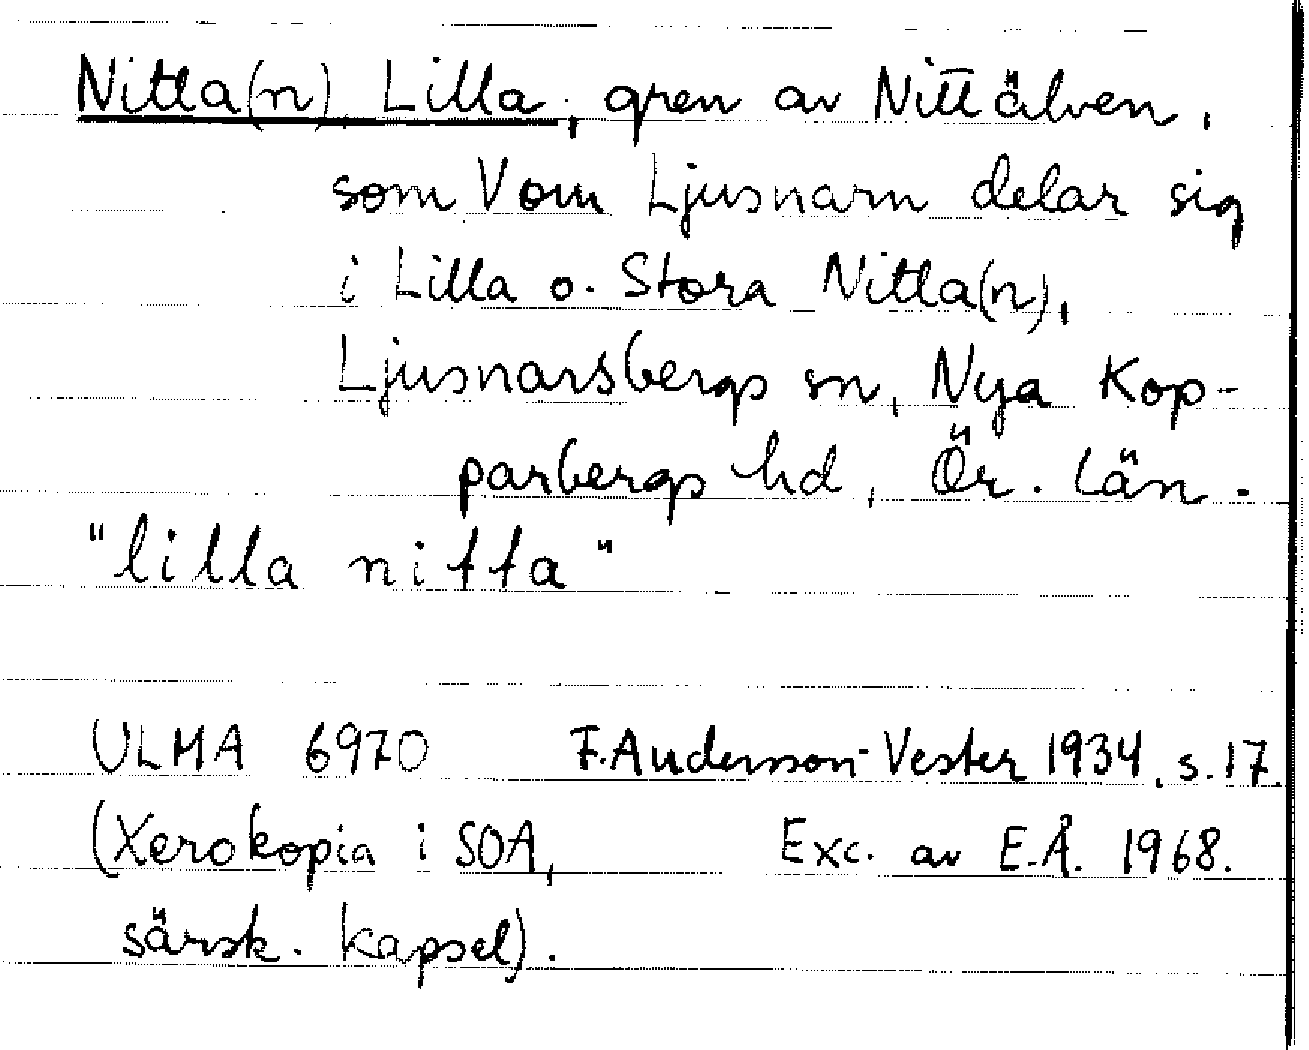 Nitta(n) Lilla, gren av Nittälven,
som V om Ljusnarn delar sig
i Lilla o. Stora Nitta(n),
Ljusnarsbergs sn, Nya Kop-
parbergs hd, Ör. län.
"lilla nitta"
ULMA 6970 F. Andersson-Vester 1934, s. 17.
(Xerokopia i SOA, Exc. av E.Å. 1968.
särsk. kapsel).